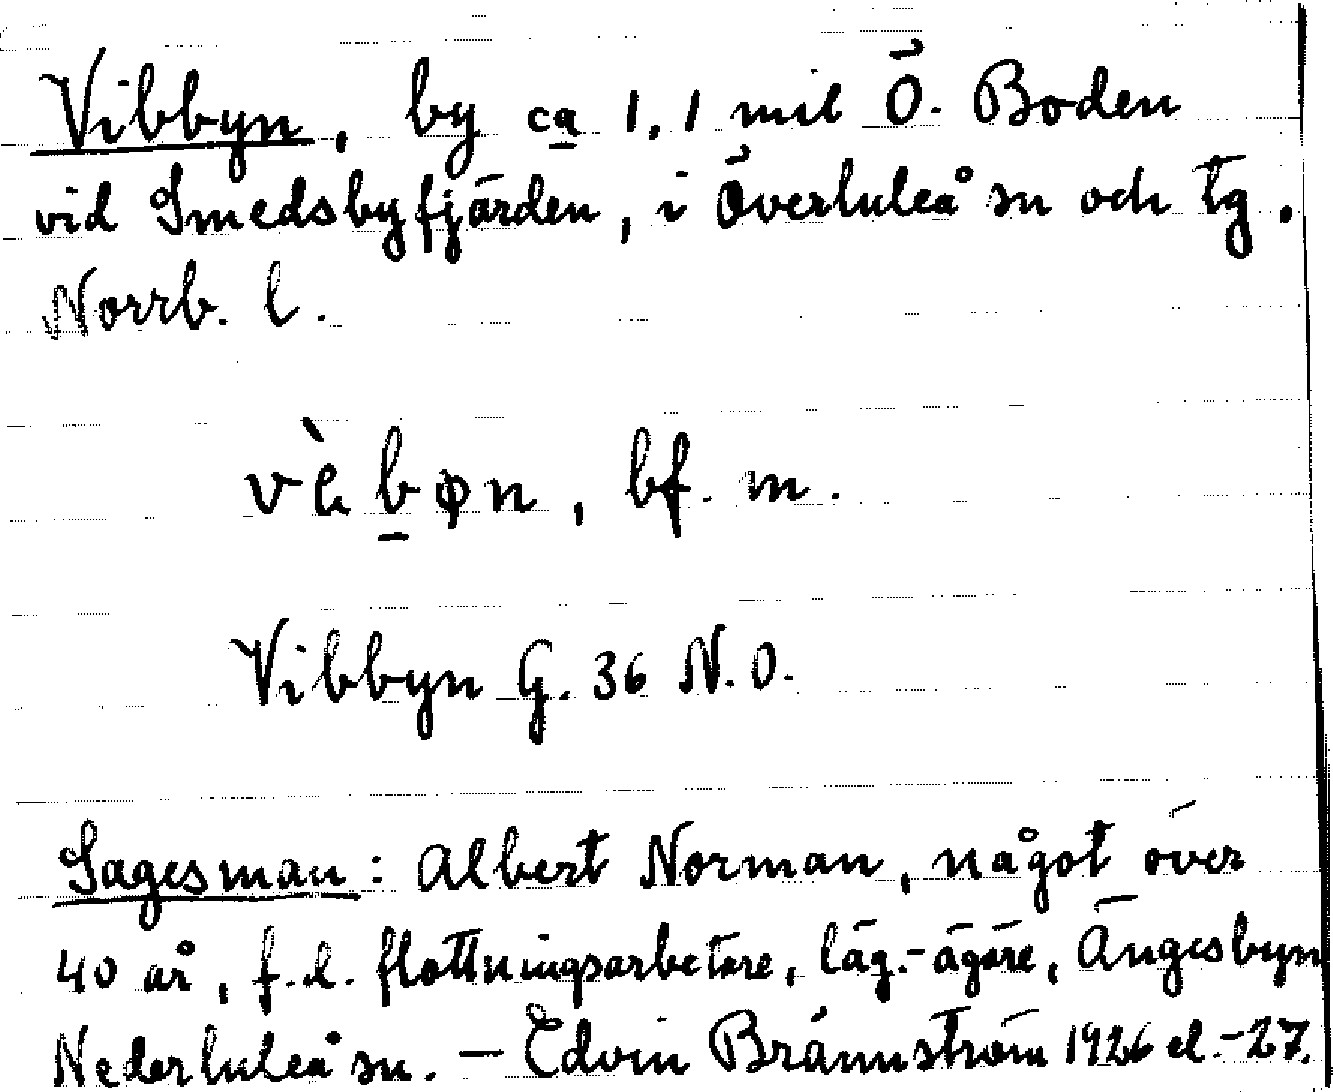 Vibbyn, by ca 1,1 mil Ö. Boden
vid Smedsbyfjärden, i Överluleå sn och tg.
Norrb. l.
bøn, bf. m.
Vibbyn G. 36 N.O.
Sagesman: Albert Norman, något över
40 år, f.d. flottningsarbetare, läg.-ägare, Ängesbyn
Nederluleå sn. — Edvin Brännström 1926 el.-27.